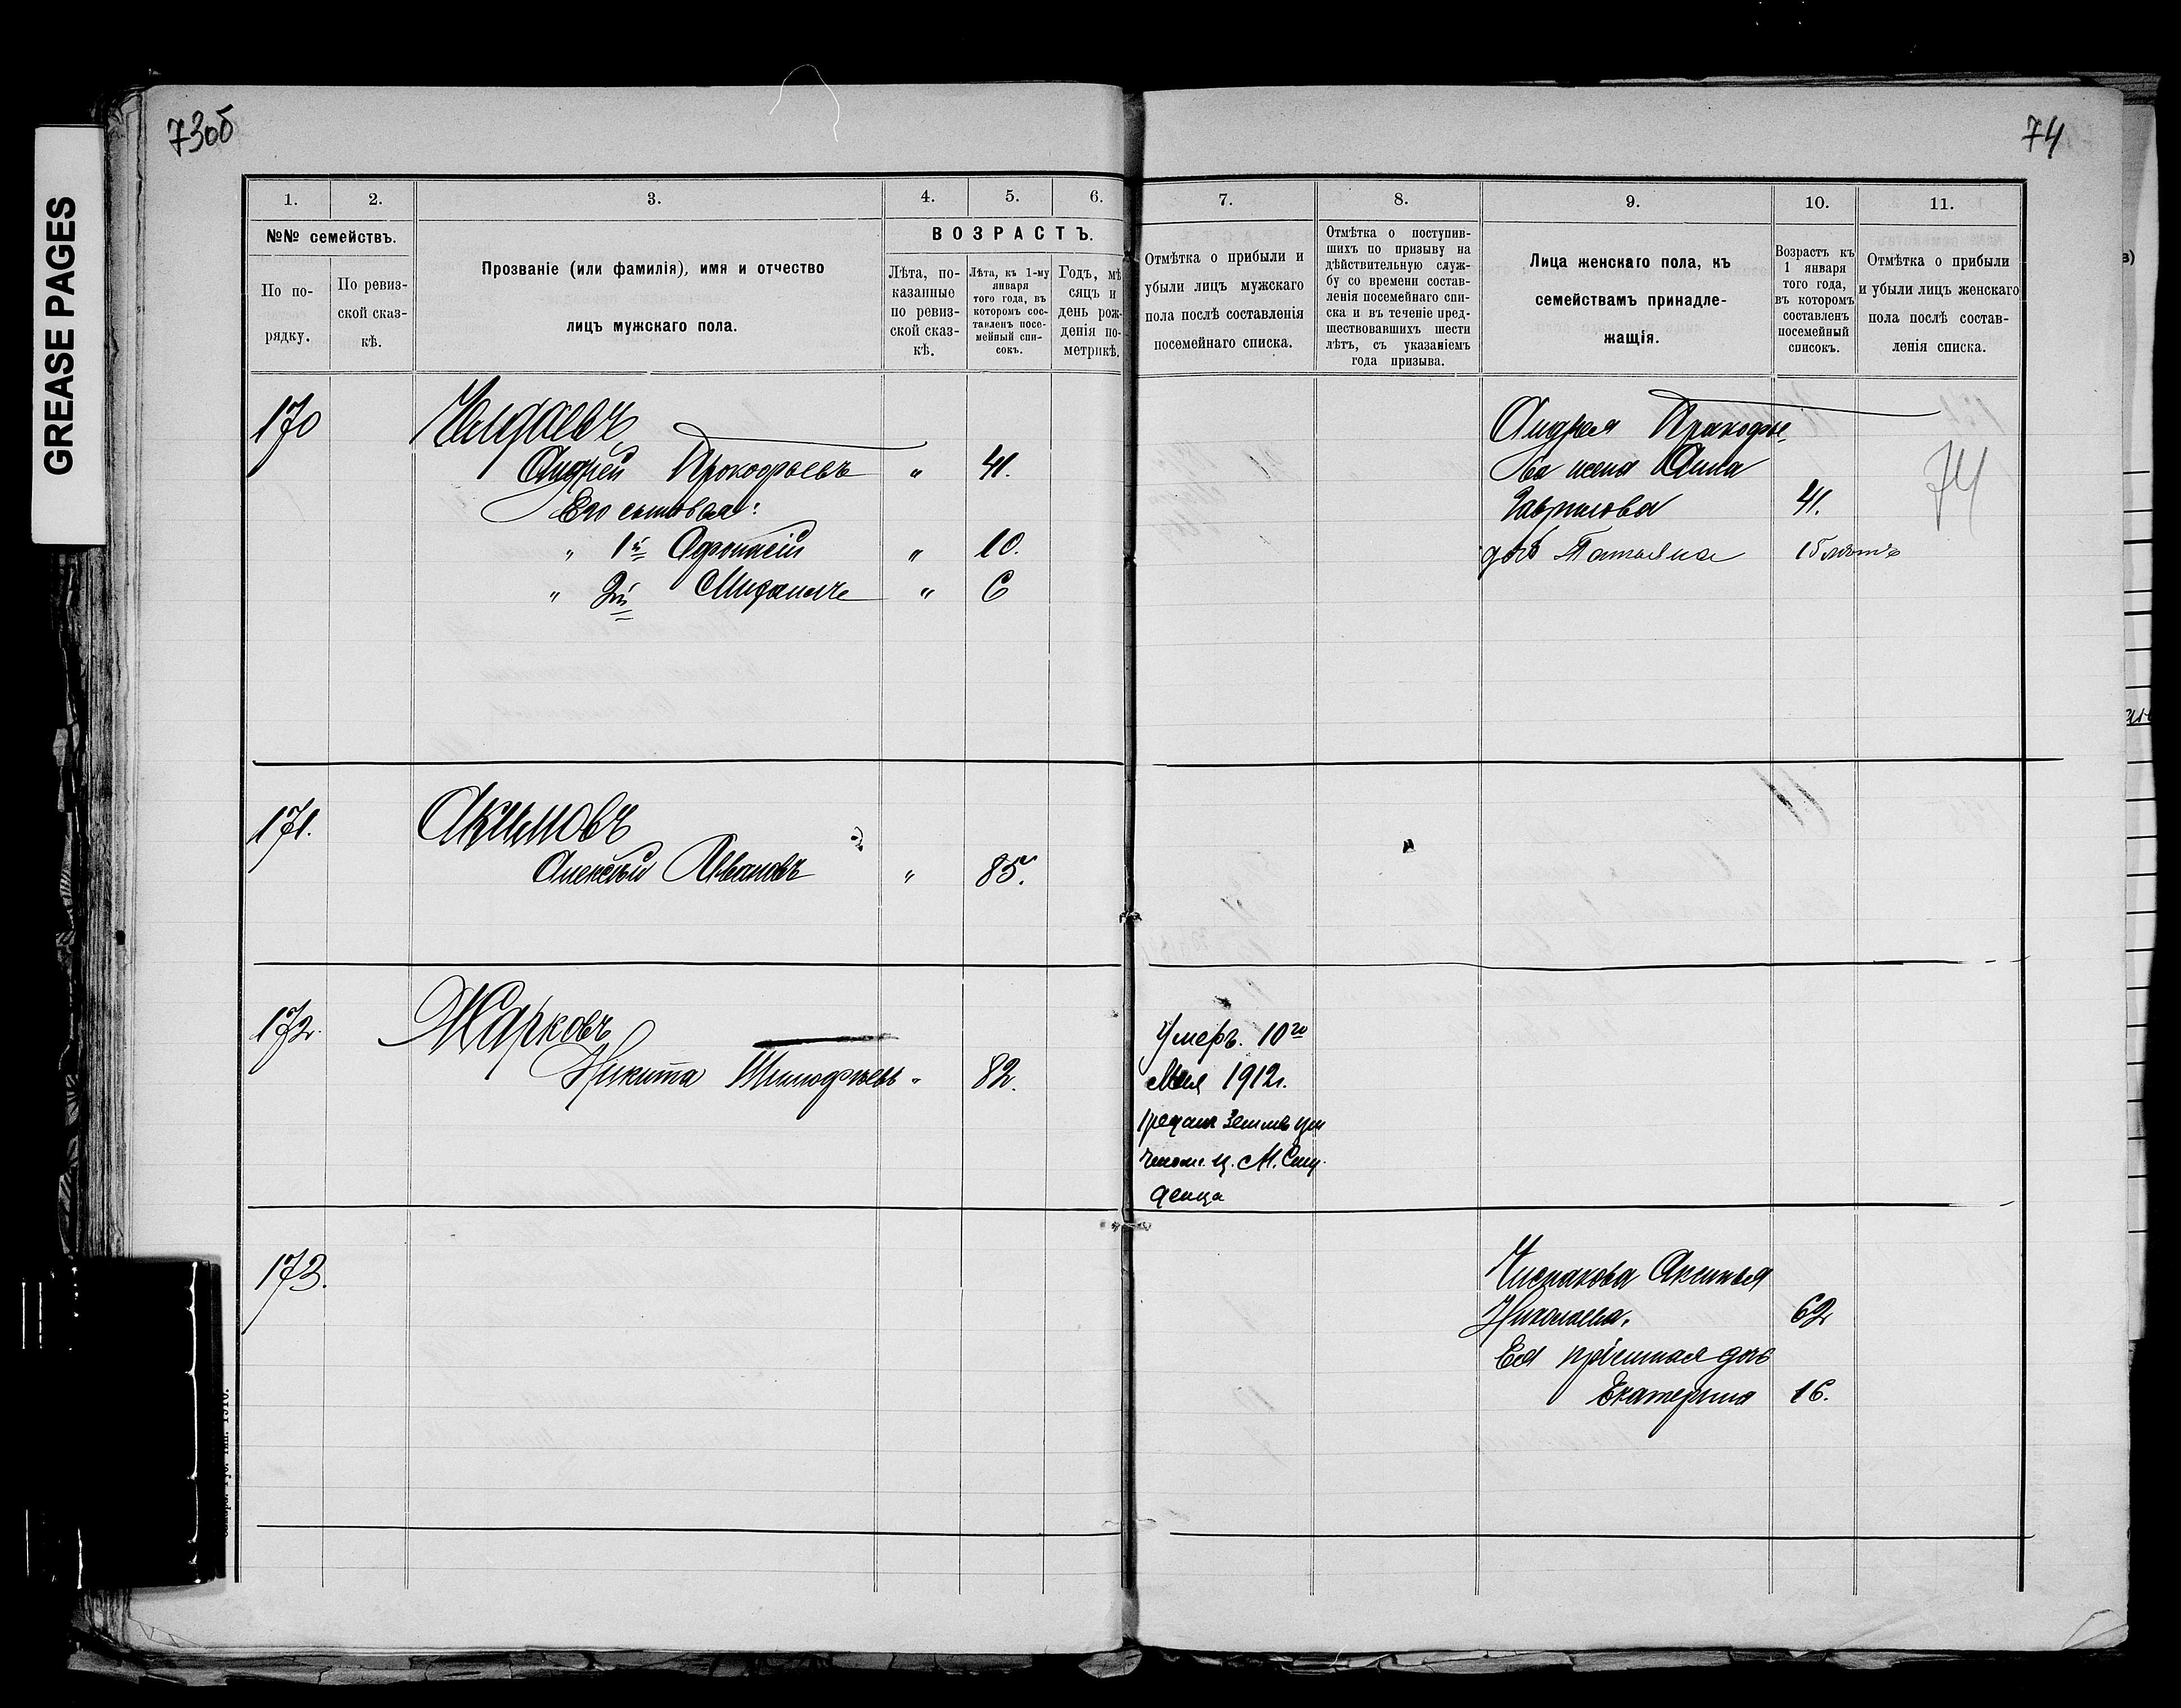 GREASE PAGES
73об
74
1.
2.
3.
4.
5.
6.
№№ семействъ.
По по-
рядку.
По ревиз-
ской сказ-
кѣ.
Прозваніе (или фамилія), имя и отчество
лицъ мужскаго пола.
ВОЗРАСТЪ.
Лѣта, по-
казанные
по ревиз-
ской сказ-
кѣ.
Лѣта, къ 1-му
января
того года, въ
которомъ сос-
тавленъ посе-
мейный спи-
сокъ.
Годъ, мѣ
сяцъ и
день рож-
денія по-
метрикѣ.
7.
8.
9.
10.
11.
Отмѣтка о прибыли и
убыли лицъ мужскаго
пола послѣ составленія
посемейнаго списка.
Отмѣтка о поступив-
шихъ по призыву на
дѣйствительную служ-
бу со времени состав-
ленія посемейнаго спи-
ска и въ теченіе пред-
шествовавшихъ шести
лѣтъ, съ указаніемъ
года призыва.
Лица женскаго пола, къ
семействамъ принадле-
жащія.
Возрастъ къ
1 января
того года,
въ которомъ
составленъ
посемейный
списокъ.
Отмѣтка о прибыли
и убыли лицъ женскаго
пола послѣ состав-
ленія списка.
170
Андрей Прокофьевъ " 41.
Его сыновья:
" 1й Афонасій " 10.
" 2й Михаилъ " 6
Андрея Прокофье
ва жена Анна
Гаврилова 41.
дочь Татьяна 15 лѣтъ
74
171.
Акимовъ
Алексѣй Ивановъ " 85.
172.
Жарковъ
Никита Тимофѣевъ " 82.
Умеръ. 10го
Мая 1912г.
предан землѣ
ц. М.
173.
Аксинья
Николаева. 62
Ея пріемная дочь
Екатерина 16.